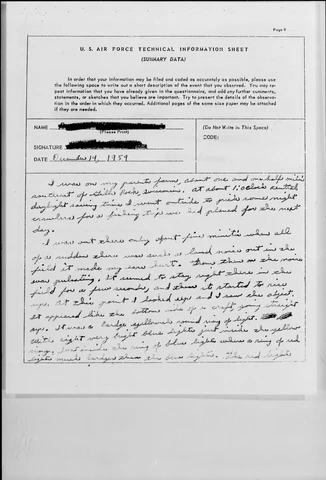 Page 9
U. S. AIR FORCE TECHNICAL INFORMATION SHEET
(SUMMARY DATA)
In order that your information may be filed and coded as accurately as possible, please use
the following space to write out a short description of the event that you observed. You may re-
peat information that you have already given in the questionnaire, and add any further comments,
statements, or sketches that you believe are important. Try to present the details of the observa-
tion in the order in which they occurred. Additional pages of the same size paper may be attached
if they are needed.
NAME
(Please Print)
(Do Not Write in This Space)
CODE:
SIGNATURE
DATE December 14, 1959
I was on my parents farm, about one and one half miles
of Gills Rock, Wisconsin. At about 1:00 central
daylight saving time I went outside to pick some night
crawlers for a fishing trip we had planed for the next
day.
I was out there only about five minits when all
of a sudden there was such a loud noise out in the
field it made my ears hurt. the noise
was pulsating. It seemed to stay right there in the
field for a few seconds, and then it started to rise
up. At this point I looked up and I saw the object.
It appeared like the bottom side of a craft going straight
up. It was a large yellowish round ring of light.
With eight very bright blue lights just inside the yellow
ring, just inside the ring of blue lights where a ring of red
lights much larger than the blue lights. The red lights